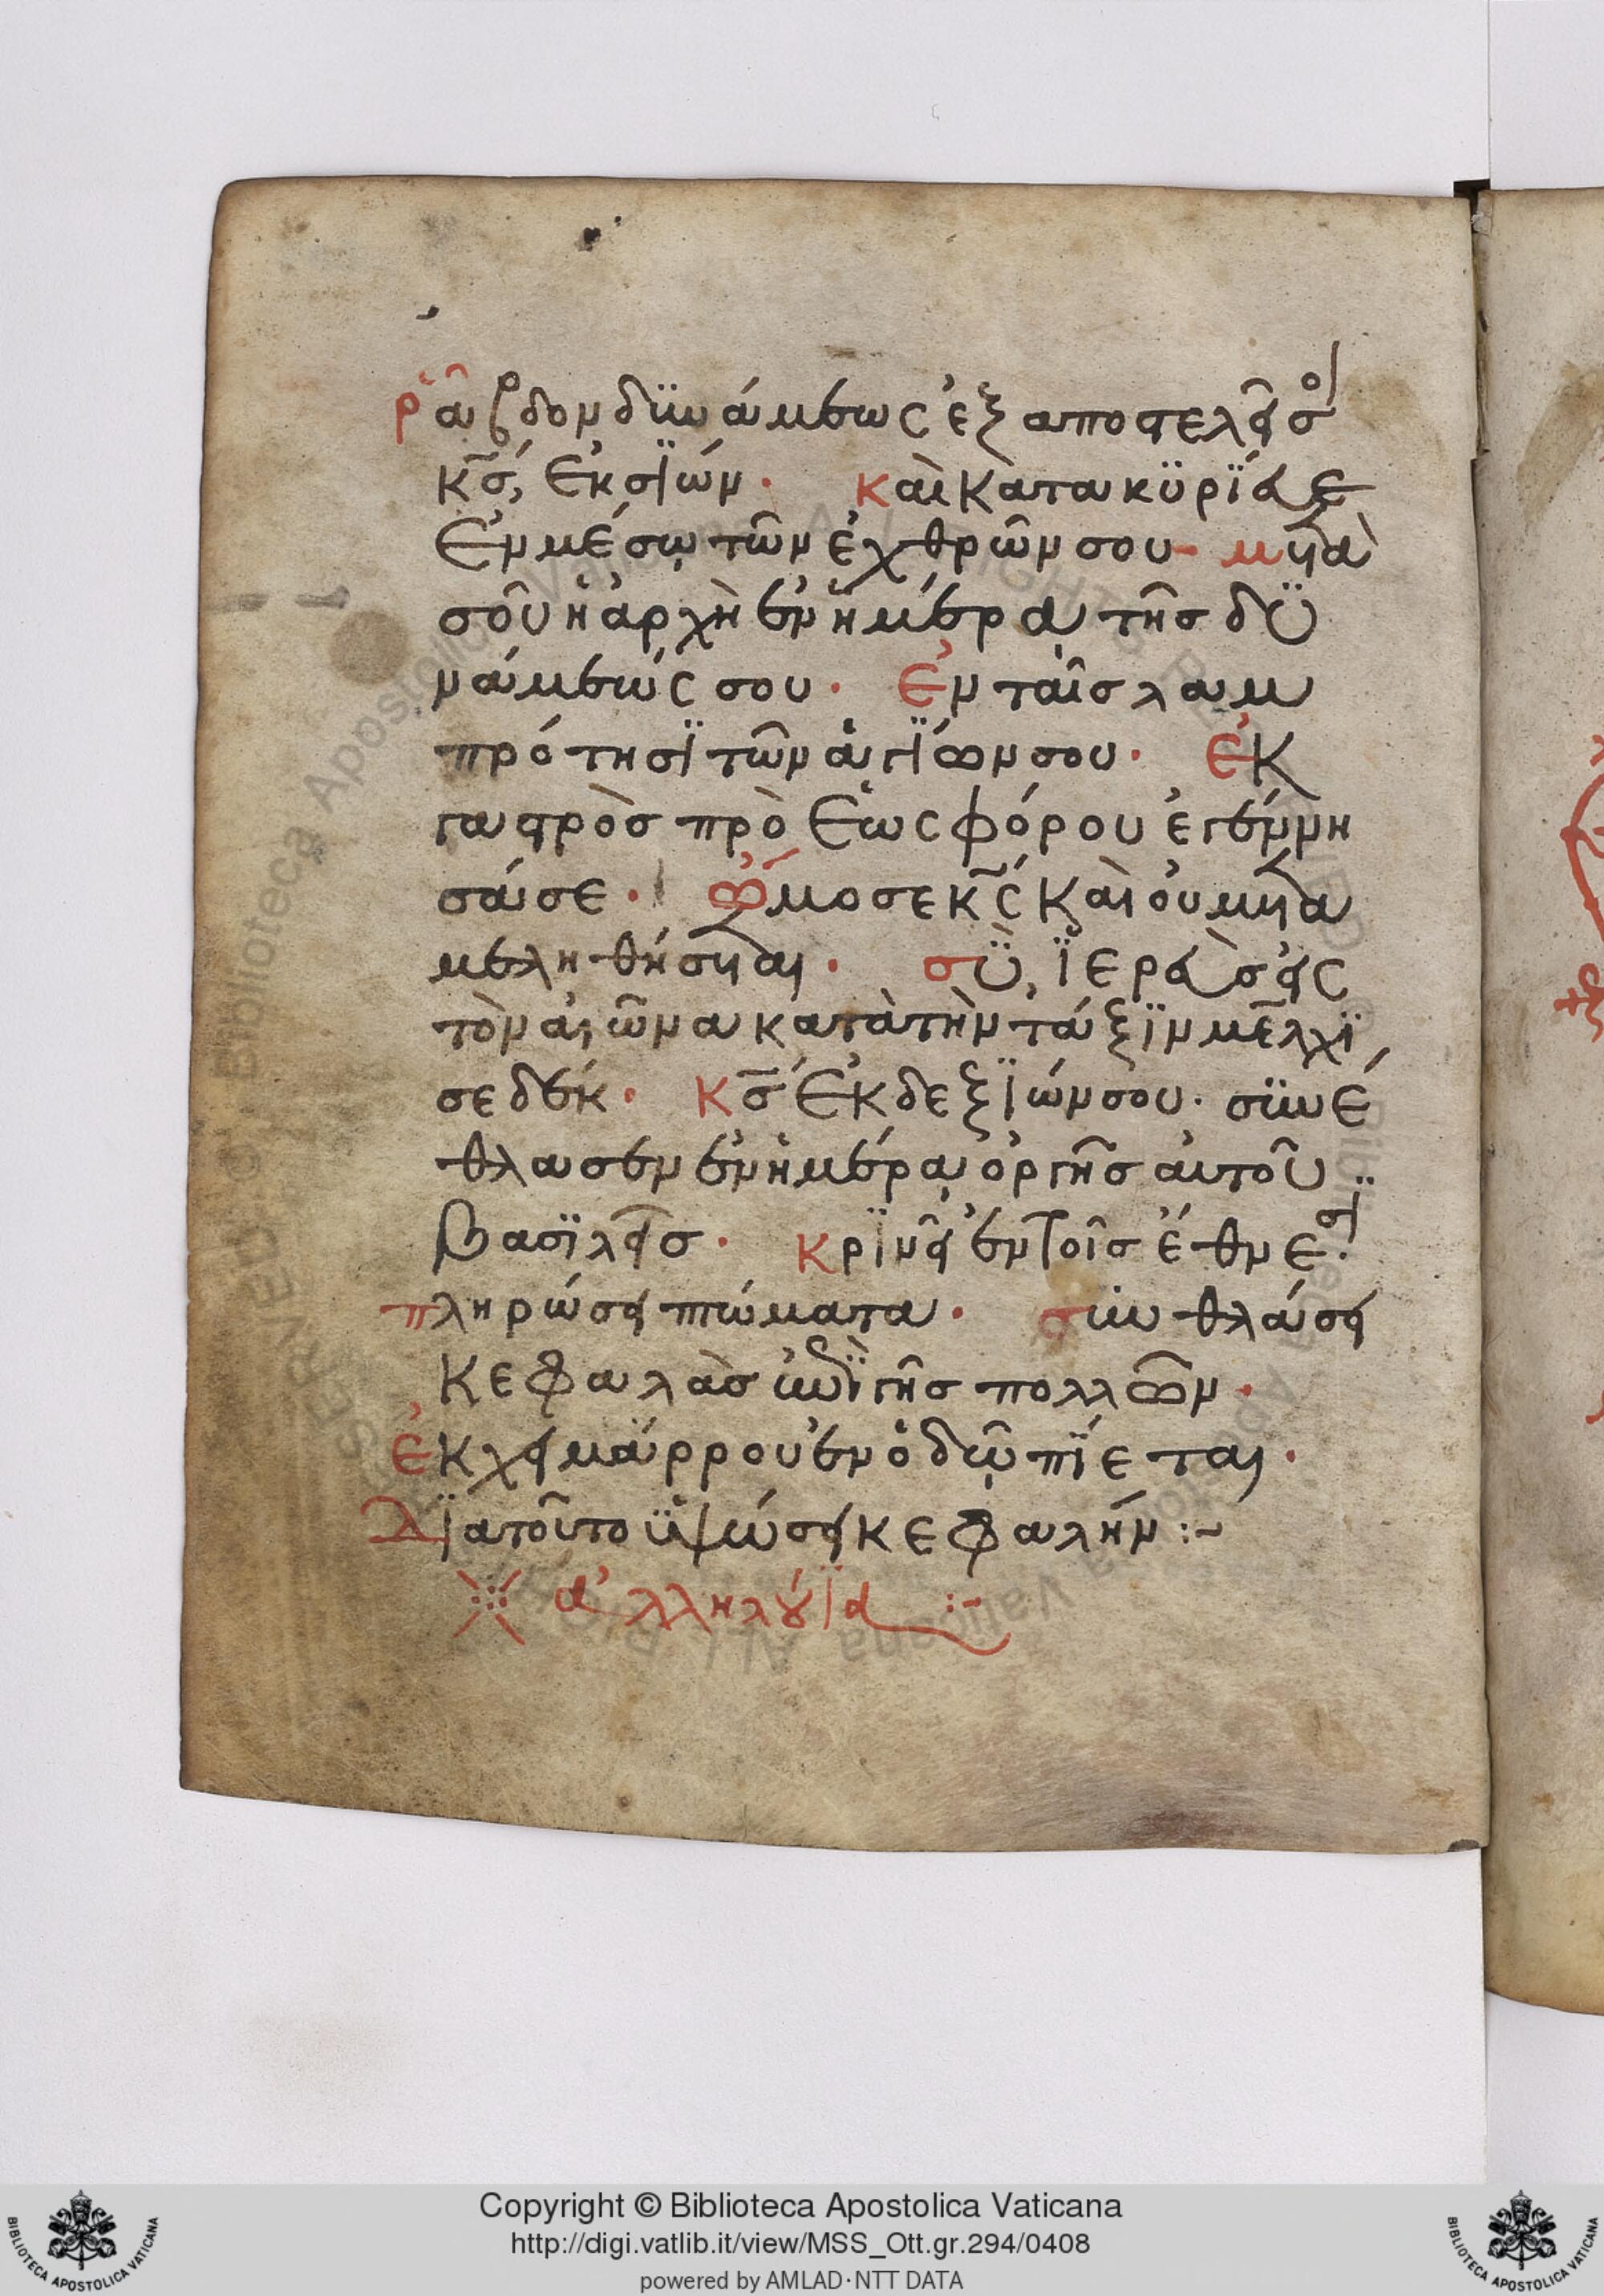 ῥᾶβδον δϋνάμεως ἐξαποστελεῖ σοι
κ̅ς̅, ἐκ σϊών· καὶ κατακϋρϊευε
ἐν μέσῳ τῶν ἐχθρῶν σου· μετὰ
σοῦ ἡ ἀρχὴ ἐν ἡμέρᾳ τῆς δϋ
νάμεώς σου· ἐν ταῖς λαμ
πρότησϊ τῶν ἁγϊων σου· ἐκ
γαστρὸς πρὸ ἑωσφόρου ἐγέννη
σά σε· ὤμοσε κ̅ς̅ καὶ οὐ μετα
μεληθήσεται· σὺ, ϊερεὺς εἰς
τὸν αἰῶνα κατὰ τὴν τάξϊν μελχϊ
σεδέκ· κ̅ς̅ ἐκ δεξϊών σου· σϋνέ
θλασεν ἐν ἡμέρᾳ ὀργῆς αὐτοῦ
βασϊλεῖς· κρϊνεῖ ἐν τοῖς ἔθνεσϊ·
πληρώσει πτώματα· σϋνθλάσει
κεφαλὰς ἐπὶ γῆς πολλῶν·
ἐκ χειμάρρου ἐν ὁδῷ πϊεται·
δϊατοῦτο ὑψώσει κεφαλήν :~
ἀλληλούϊα :~
Copyright © Biblioteca Apostolica Vaticana
http://digi.vatlib.it/view/MSS_Ott.gr.294/0408
powered by AMLAD·NTT DATA
BIBLIOTECA APOSTOLICA VATICANA
BIBLIOTECA APOSTOLICA VATICANA